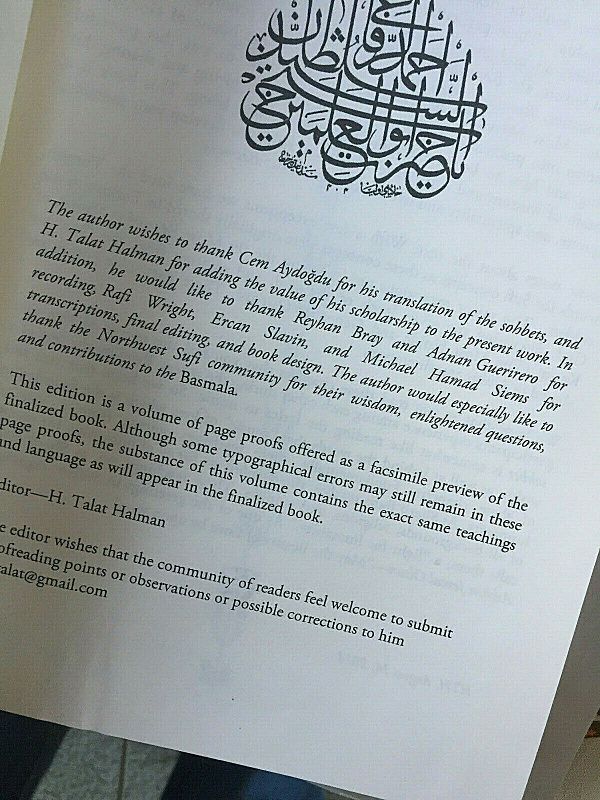 The author wishes to thank Cem Aydoğdu for his translation of the sohbets, and
H. Talat Halman for adding the value of his scholarship to the present work. In
addition, he would like to thank Reyhan Bray and Adnan Guerirero for
recording, Rafi Wright, Ercan Slavin, and Michael Hamad Siems for
transcriptions, final editing, and book design. The author would especially like to
thank the Northwest Sufi community for their wisdom, enlightened questions,
and contributions to the Basmala.
This edition is a volume of page proofs offered as a facsimile preview of the
finalized book. Although some typographical errors may still remain in these
page proofs, the substance of this volume contains the exact same teachings
and language as will appear in the finalized book.
ditor—H. Talat Halman
e editor wishes that the community of readers feel welcome to submit
ofreading points or observations or possible corrections to him
talat@gmail.com